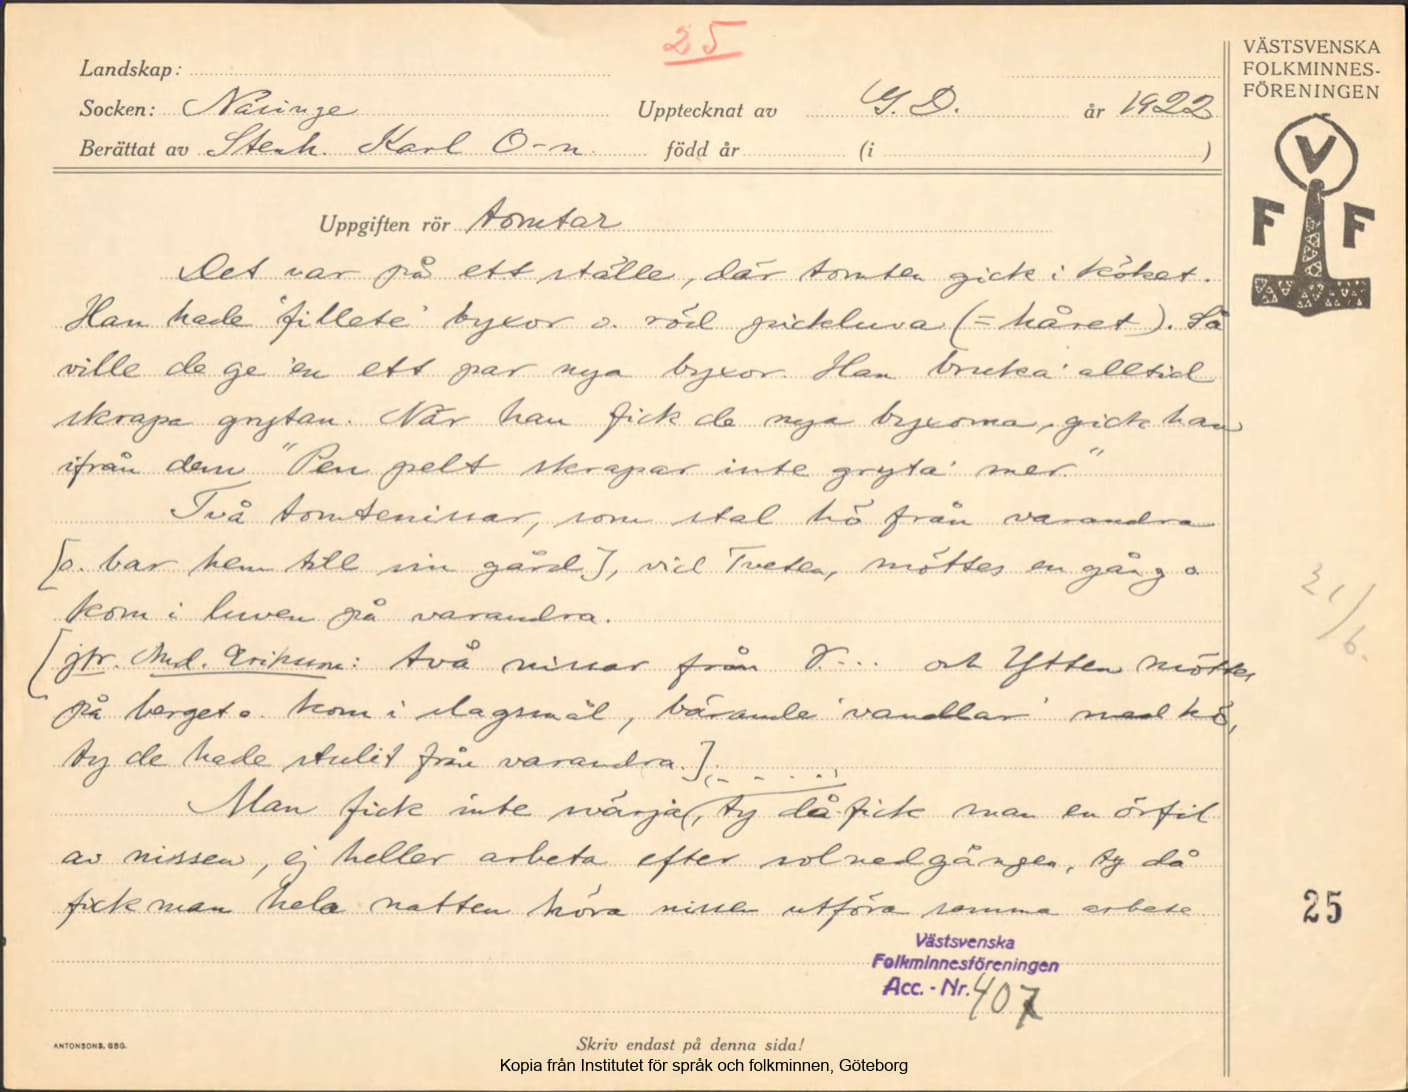 25
VÄSTSVENSKA
FOLKMINNES-
FÖRENINGEN
V
F F
Landskap:
Socken: Näsinge Upptecknat av G. D. år 1922
Berättat av Stenh. Karl O-n född år (i )
Uppgiften rör tomtar
Det var på ett ställe, där tomten gick i köket.
Han hade 'fillete' byxor o. röd pickluva (= håret). Så
ville de ge 'en ett par nya byxor. Han bruka' alltid
skrapa grytan. När han fick de nya byxorna, gick han
ifrån dem "Pen pelt skrapar inte gryta' mer."
Två tomtenissar, som stal hö från varandra
[o. bar hem till sin gård], vid Tveten, möttes en gång o.
kom i luven på varandra.
[jfr. And. Eriksson: två nissar från V... och Ytten möttes
på berget o. kom i slagsmål, bärande 'vandlar' med hö,
ty de hade stulit från varandra.]
Man fick inte svärja, ty då fick man en örfil
av nissen, ej heller arbeta efter solnedgången, ty då
fick man hela natten höra nissen utföra samma arbete
21/6.
25
Västsvenska
Folkminnesföreningen
Acc. - Nr. 407
ANTONSONS, GBG.
Skriv endast på denna sida!
Kopia från Institutet för språk och folkminnen, Göteborg